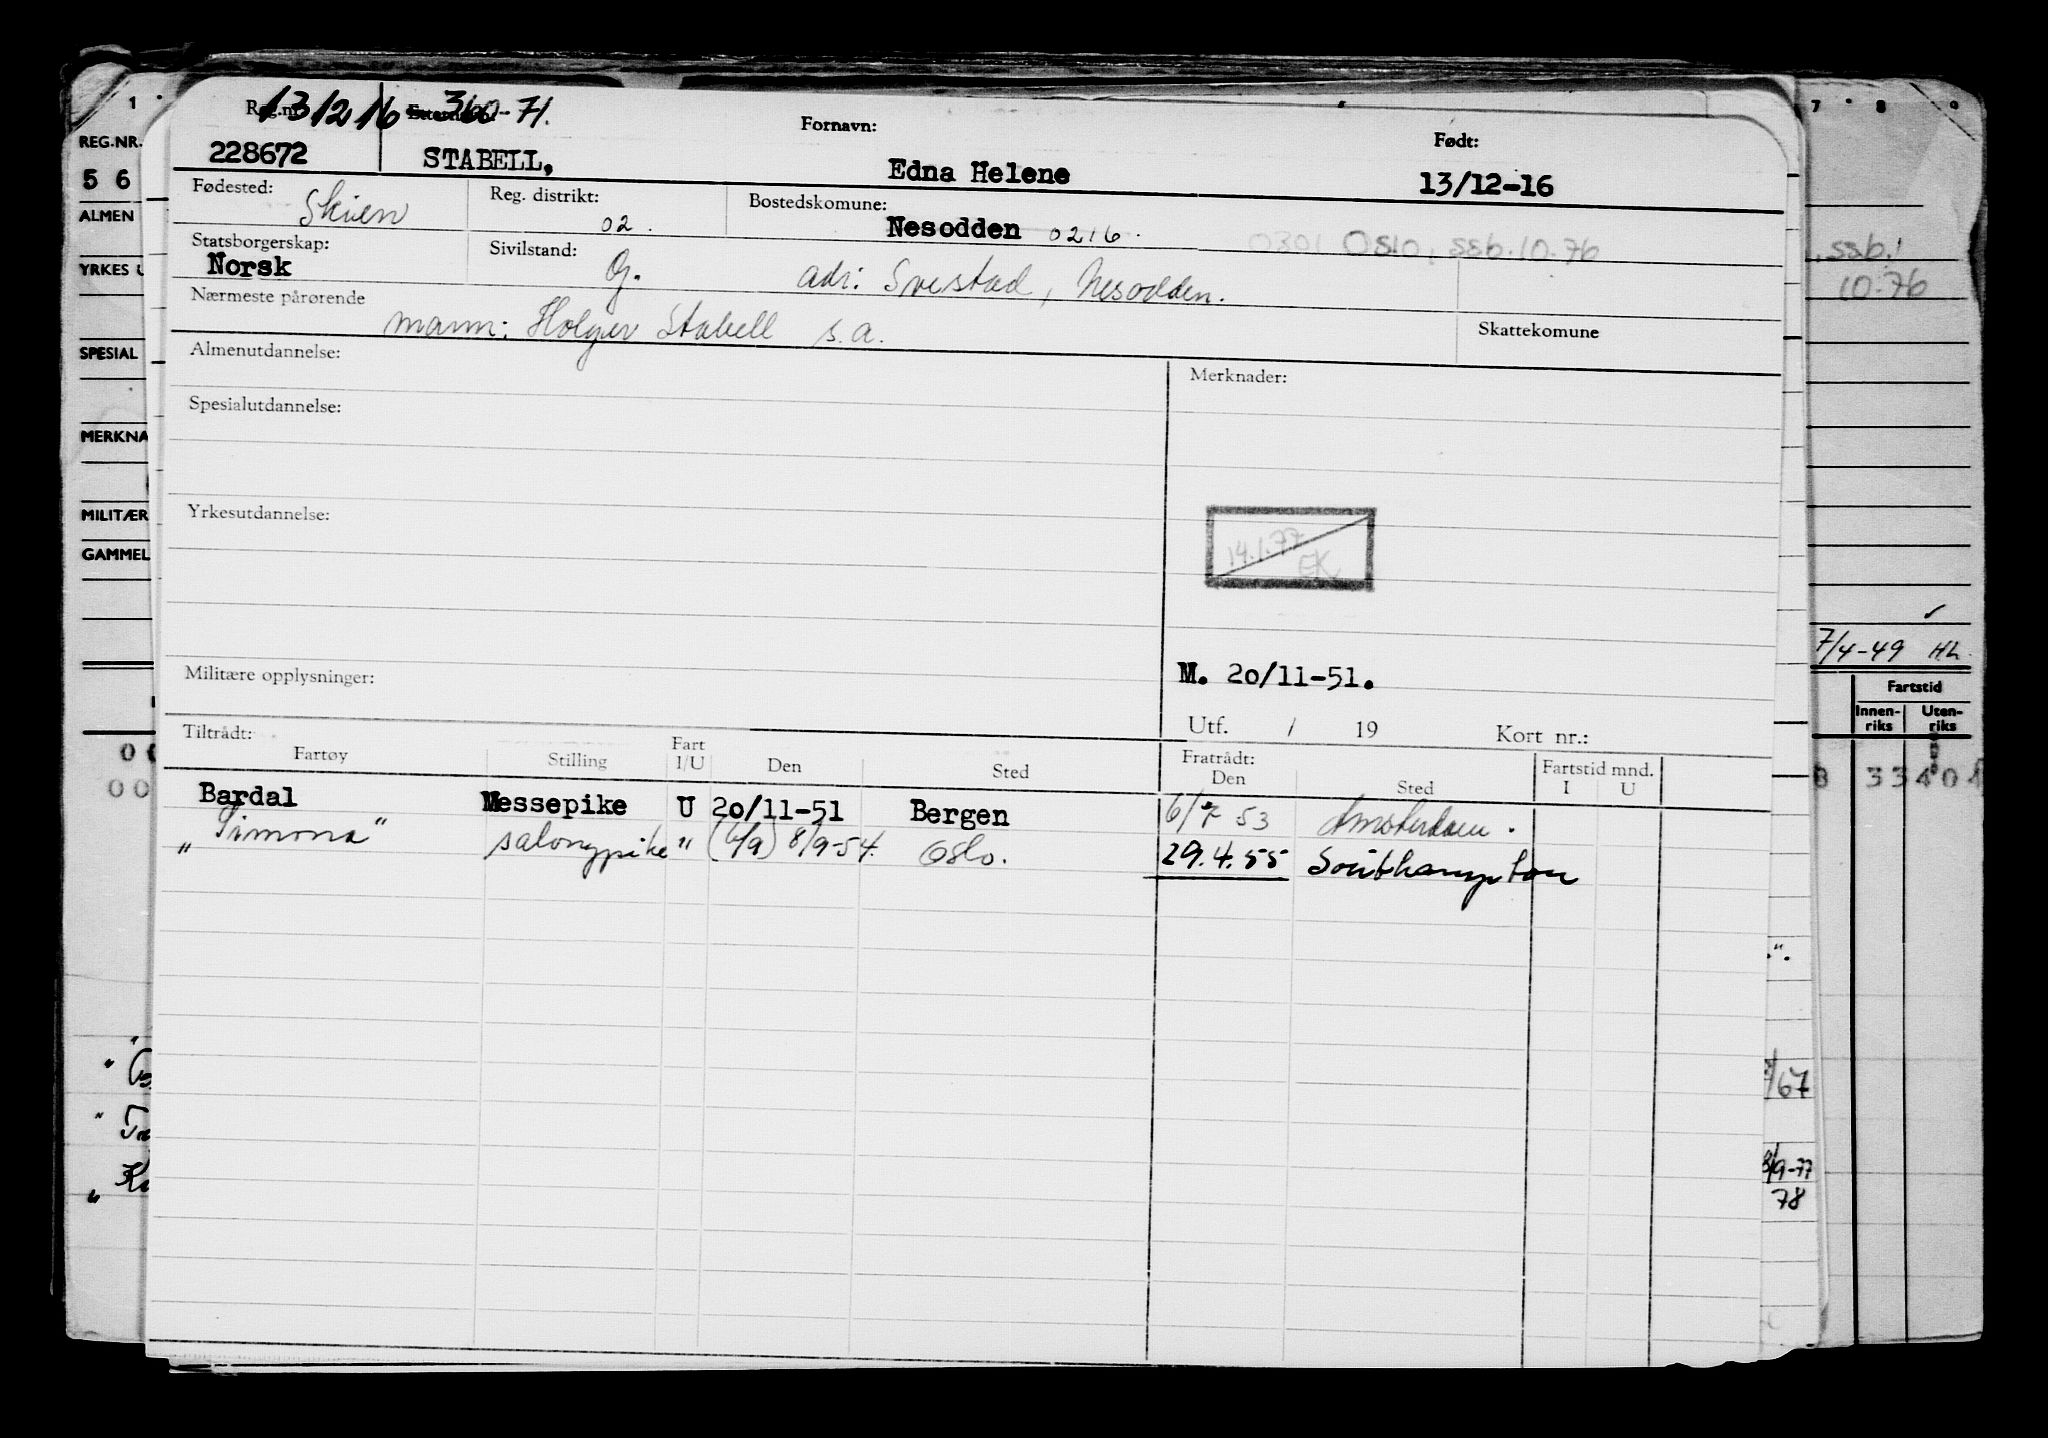 1 7 8 9
131216 360-71.
Reg.nr. Etternavn: Fornavn: Født:
228672 STABELL, Edna Helene 13/12-16
Fødested: Skien Reg. distrikt: 02. Bostedskomune: Nesodden 0216. 0301 Oslo, ssb. 10.76
Statsborgerskap: Norsk Sivilstand: G. adr: Svestad, Nesodden.
Nærmeste pårørende
mann: Holger Stabell s.a. Skattekomune
Almenutdannelse: Merknader:
Spesialutdannelse:
Yrkesutdannelse:
14.1.77
EK
Militære opplysninger: M. 20/11-51.
Utf. / 19 Kort nr.:
Tiltrådt: Fratrådt:
Fartøy Stilling Fart I/U Den Sted Den Sted Fartstid mnd. I U
Bardal Messepike U 20/11-51 Bergen 6/7 53 Amsterdam.
"Simona" salongpike " (6/9) 8/9-54. Oslo. 29.4.55 Southampton
REG.NR.
5 6
ALMEN
YRKES
SPESIAL
MERKNA
MILITÆR
GAMMEL
ssb.
10.76
7/4-49 HL.
Fartstid
Innen-riks Uten-riks
3 3 4 0
/67
8/9-77
78